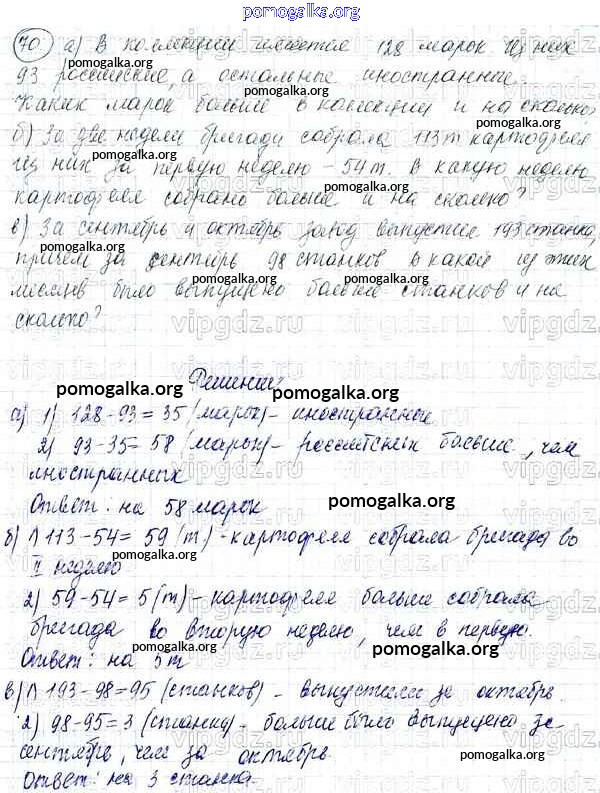 pomogalka.org
70. а) В коллекции имеется 128 марок. Из них
93 российские, а остальные иностранные.
pomogalka.org
Каких марок больше в коллекции и на сколько?
б) За две недели бригада собрала 113 т картофеля
pomogalka.org
из них за первую неделю – 54 т. В какую неделю
картофеля собрано больше и на сколько?
pomogalka.org
в) За сентябрь и октябрь завод выпустил 193 станка,
причем за сентябрь 98 станков в какой из этих
pomogalka.org
месяцев было выпущено больше станков и на
сколько?
vipgdz.ru
Решение:
pomogalka.org
pomogalka.org
а) 1) 128-93=35 (марок) - иностранные
2) 93-35=58 (марок) - российских больше, чем
иностранных
Ответ: на 58 марок
pomogalka.org
б) 1) 113-54=59 (т) - картофеля собрала бригада во
II неделю
pomogalka.org
2) 59-54=5 (т) - картофеля больше собрала
бригада во вторую неделю, чем в первую.
Ответ: на 5 т
pomogalka.org
в) 1) 193-98=95 (станков) - выпустили за октябрь.
pomogalka.org
2) 98-95=3 (станка) - больше было выпущено за
сентябрь, чем за октябрь
pomogalka.org
Ответ: на 3 станка.
pomogalka.org